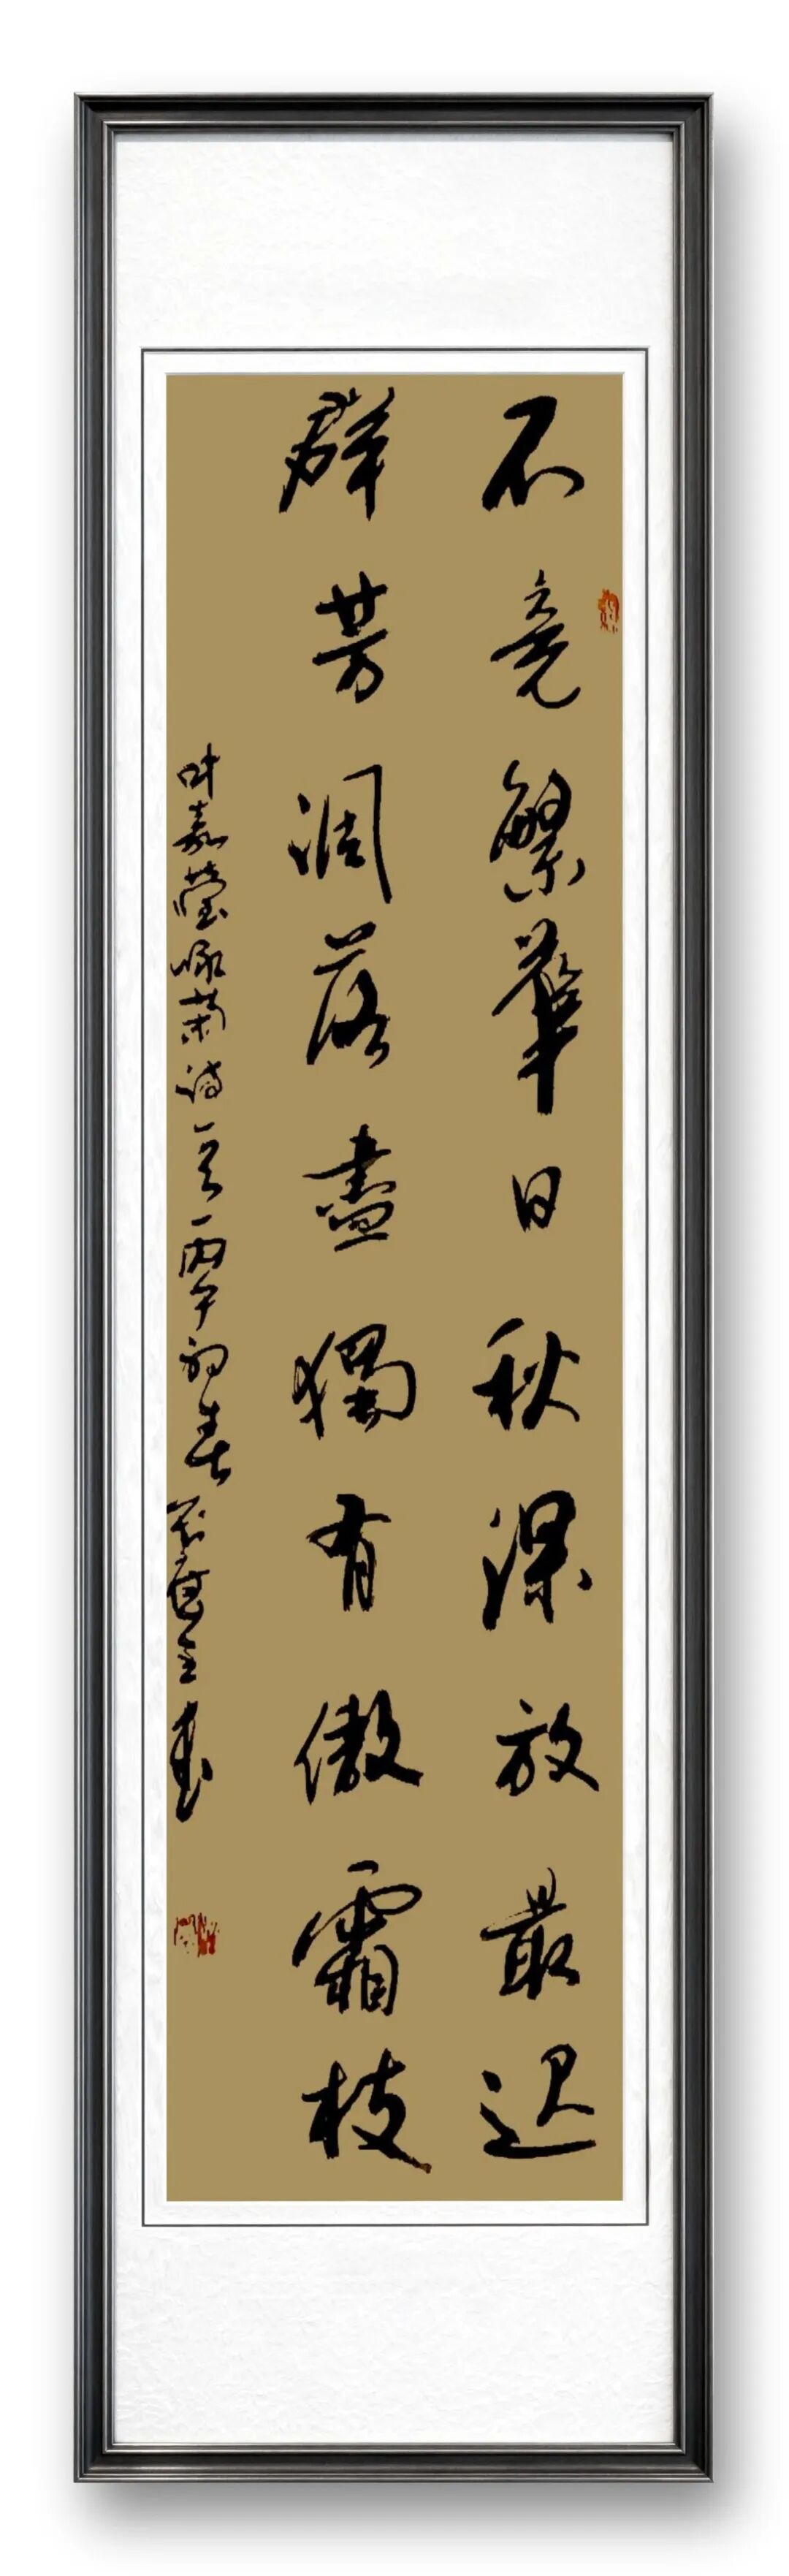 不竞繁華日秋深放最迟
群芳凋落盡獨有傲霜枝
叶嘉莹咏菊诗一首丙午初春